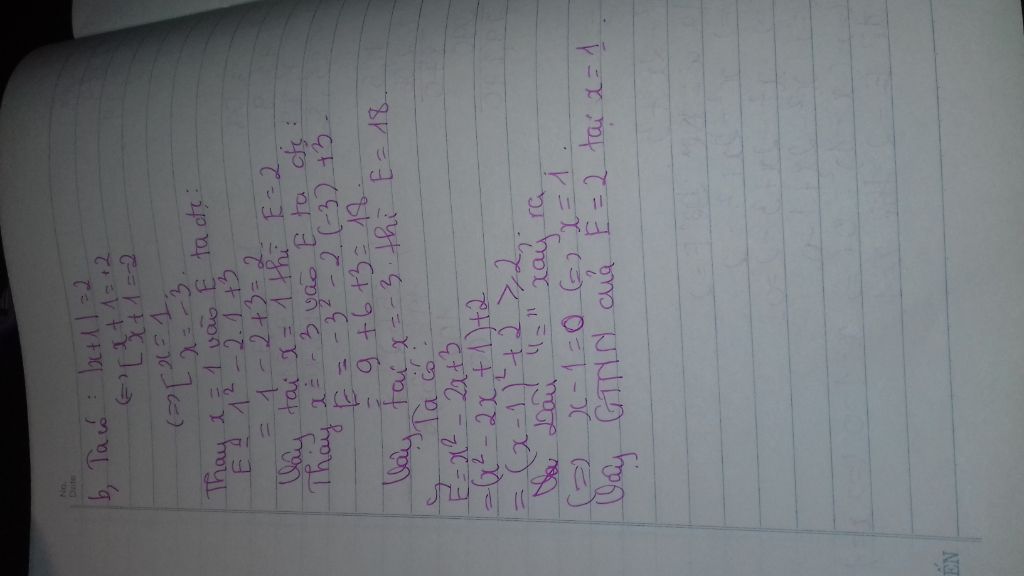 No.
Date
b, Ta có : |x+1|=2
(=> [ x+1=+2
x+1=-2
(=> [ x=1
x=-3.
Thay x=1 vào E ta đc:
E= 1² - 2.1 +3
= 1 - 2+3=2
Vậy tại x=1 thì E=2
Thay x=-3 vào E ta đc:
E= -3² - 2.(-3) +3.
= 9 +6 +3= 18.
Vậy tại x=-3 thì E=18.
Ta có:
E=x² - 2x+3
=(x² - 2x +1)+2
= (x-1)² +2 ≥2.
Dấu "=" xảy ra
(=> x-1=0 (=> x=1.
Vậy GTNN của E=2 tại x=1
ẾN